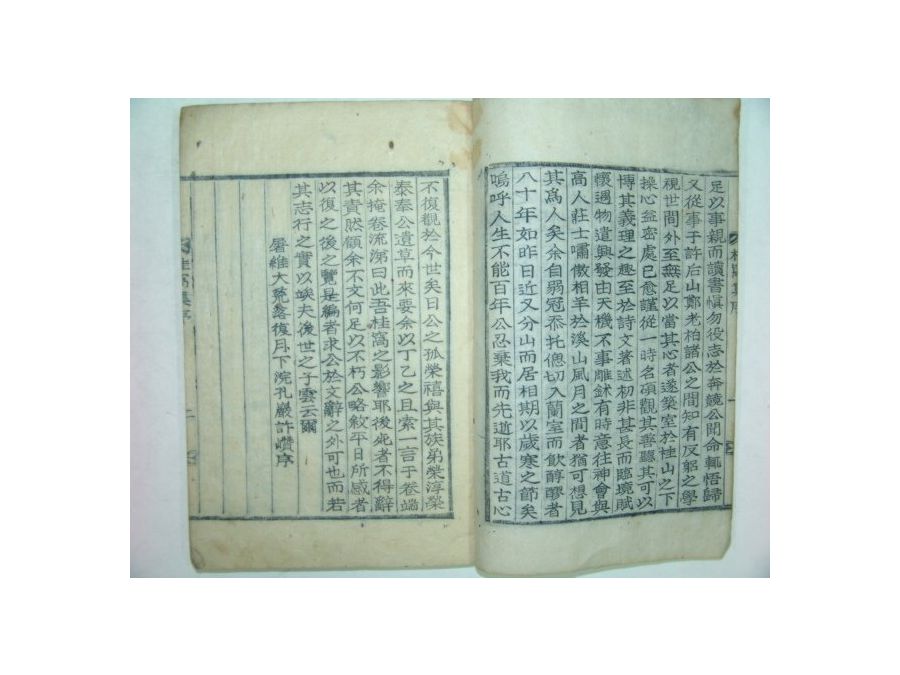 足以事親而讀書愼勿役志於奔競公聞命輒悟歸
又從事于許后山鄭老柏諸公之間知有反躬之學
視世間外至無足以當其心者遂築室於桂山之下
操心益密處已愈謹從一時名碩觀其善聽其可以
博其義理之趣至於詩文著述初非甚長而臨境賦
懷遇物遣興發由天機不事雕鉥有時意往神會與
高人莊士嘯傲相羊於溪山風月之間者猶可想見
其爲人矣余自弱冠忝托偲切入蘭室而飮醇醪者
八十年如昨日近又分山而居相期以歲寒之節矣
嗚呼人生不能百年公忍棄我而先逝耶古道古心
不復觀於今世矣日公之孤榮禧與其族弟榮淳榮
泰奉公遺草而來要余以丁乙之且索一言于卷端
余掩卷流涕曰此吾桂窩之影響耶後死者不得辭
其責然顧余不文何足以不朽公略敍平日所感者
以復之後之覽是編者求公於文辭之外可也而若
其志行之實以竢夫後世之子雲云爾
屠維大荒落復月下浣孔巖許巑序
桂窩集序
二